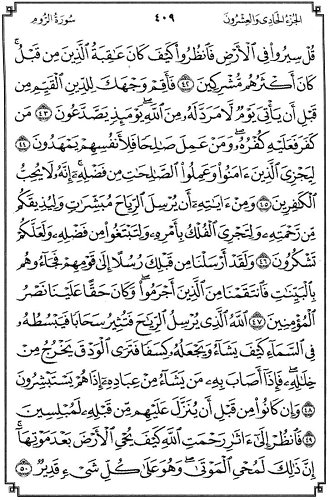 الجُزْءُ الحَادِى وَالعِشْرُونَ ٤٠٩ سُورَةُ الرُّومِ
قُلْ سِيرُوا۟ فِى ٱلْأَرْضِ فَٱنظُرُوا۟ كَيْفَ كَانَ عَٰقِبَةُ ٱلَّذِينَ مِن قَبْلُ ۚ
كَانَ أَكْثَرُهُم مُّشْرِكِينَ ٤٢ فَأَقِمْ وَجْهَكَ لِلدِّينِ ٱلْقَيِّمِ مِن
قَبْلِ أَن يَأْتِىَ يَوْمٌ لَّا مَرَدَّ لَهُۥ مِنَ ٱللَّهِ ۖ يَوْمَئِذٍ يَصَّدَّعُونَ ٤٣ مَن
كَفَرَ فَعَلَيْهِ كُفْرُهُۥ ۖ وَمَنْ عَمِلَ صَٰلِحًا فَلِأَنفُسِهِمْ يَمْهَدُونَ ٤٤
لِيَجْزِىَ ٱلَّذِينَ ءَامَنُوا۟ وَعَمِلُوا۟ ٱلصَّٰلِحَٰتِ مِن فَضْلِهِۦٓ ۚ إِنَّهُۥ لَا يُحِبُّ
ٱلْكَٰفِرِينَ ٤٥ وَمِنْ ءَايَٰتِهِۦٓ أَن يُرْسِلَ ٱلرِّيَاحَ مُبَشِّرَٰتٍ وَلِيُذِيقَكُم
مِّن رَّحْمَتِهِۦ وَلِتَجْرِىَ ٱلْفُلْكُ بِأَمْرِهِۦ وَلِتَبْتَغُوا۟ مِن فَضْلِهِۦ وَلَعَلَّكُمْ
تَشْكُرُونَ ٤٦ وَلَقَدْ أَرْسَلْنَا مِن قَبْلِكَ رُسُلًا إِلَىٰ قَوْمِهِمْ فَجَآءُوهُم
بِٱلْبَيِّنَٰتِ فَٱنتَقَمْنَا مِنَ ٱلَّذِينَ أَجْرَمُوا۟ ۖ وَكَانَ حَقًّا عَلَيْنَا نَصْرُ
ٱلْمُؤْمِنِينَ ٤٧ ٱللَّهُ ٱلَّذِى يُرْسِلُ ٱلرِّيَٰحَ فَتُثِيرُ سَحَابًا فَيَبْسُطُهُۥ
فِى ٱلسَّمَآءِ كَيْفَ يَشَآءُ وَيَجْعَلُهُۥ كِسَفًا فَتَرَى ٱلْوَدْقَ يَخْرُجُ مِنْ
خِلَٰلِهِۦ ۖ فَإِذَآ أَصَابَ بِهِۦ مَن يَشَآءُ مِنْ عِبَادِهِۦٓ إِذَا هُمْ يَسْتَبْشِرُونَ
٤٨ وَإِن كَانُوا۟ مِن قَبْلِ أَن يُنَزَّلَ عَلَيْهِم مِّن قَبْلِهِۦ لَمُبْلِسِينَ
٤٩ فَٱنظُرْ إِلَىٰٓ ءَاثَٰرِ رَحْمَتِ ٱللَّهِ كَيْفَ يُحْىِ ٱلْأَرْضَ بَعْدَ مَوْتِهَآ ۚ
إِنَّ ذَٰلِكَ لَمُحْىِ ٱلْمَوْتَىٰ ۖ وَهُوَ عَلَىٰ كُلِّ شَىْءٍ قَدِيرٌ ٥٠